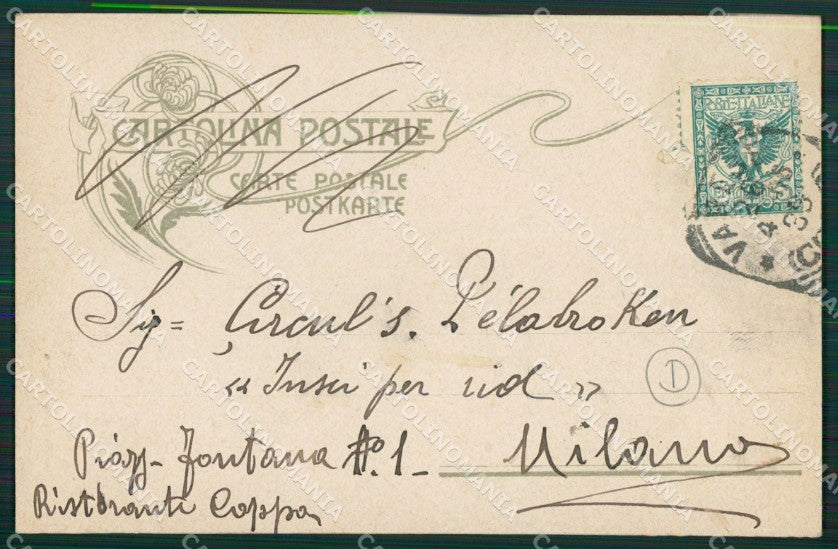 CARTOLINA POSTALE
CARTE POSTALE
POSTKARTE
POSTE ITALIANE
Sig= Circul's. Délabroken
« Insci per rid »
D
Piazz- Fontana No. 1- Milano
Ristorante Coppa
CARTOLINOMANIA